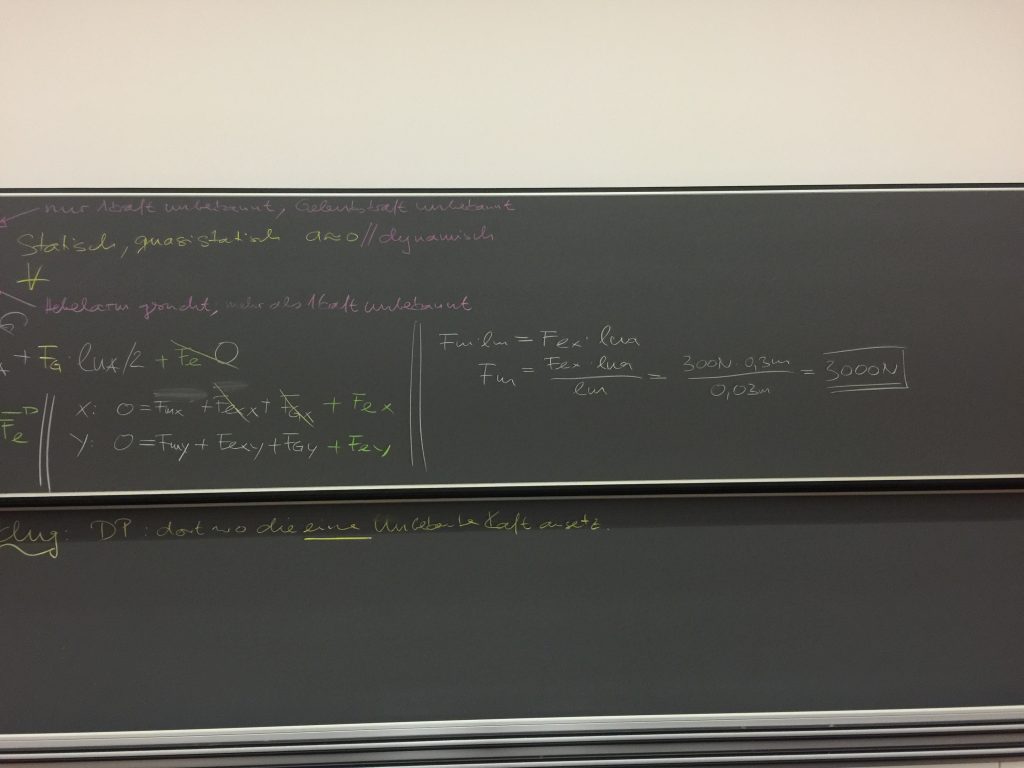 nur 1 Kraft unbekannt, Gelenkskraft unbekannt
Statisch, quasistatisch a≈0 // dynamisch
Hebelarm gesucht, mehr als 1 Kraft unbekannt
+ FG · luA/2 + Fe · 0
x: 0 = Fmx + Fexx + FGx + Fex
Fe
y: 0 = Fmy + Fexy + FGy + Fey
Fm · lm = Fex · lua
Fm = Fex · lua / lm = 300N · 0,3m / 0,03m = 3000N
klug: DP: dort wo die eine unbekannte Kraft ansetzt.